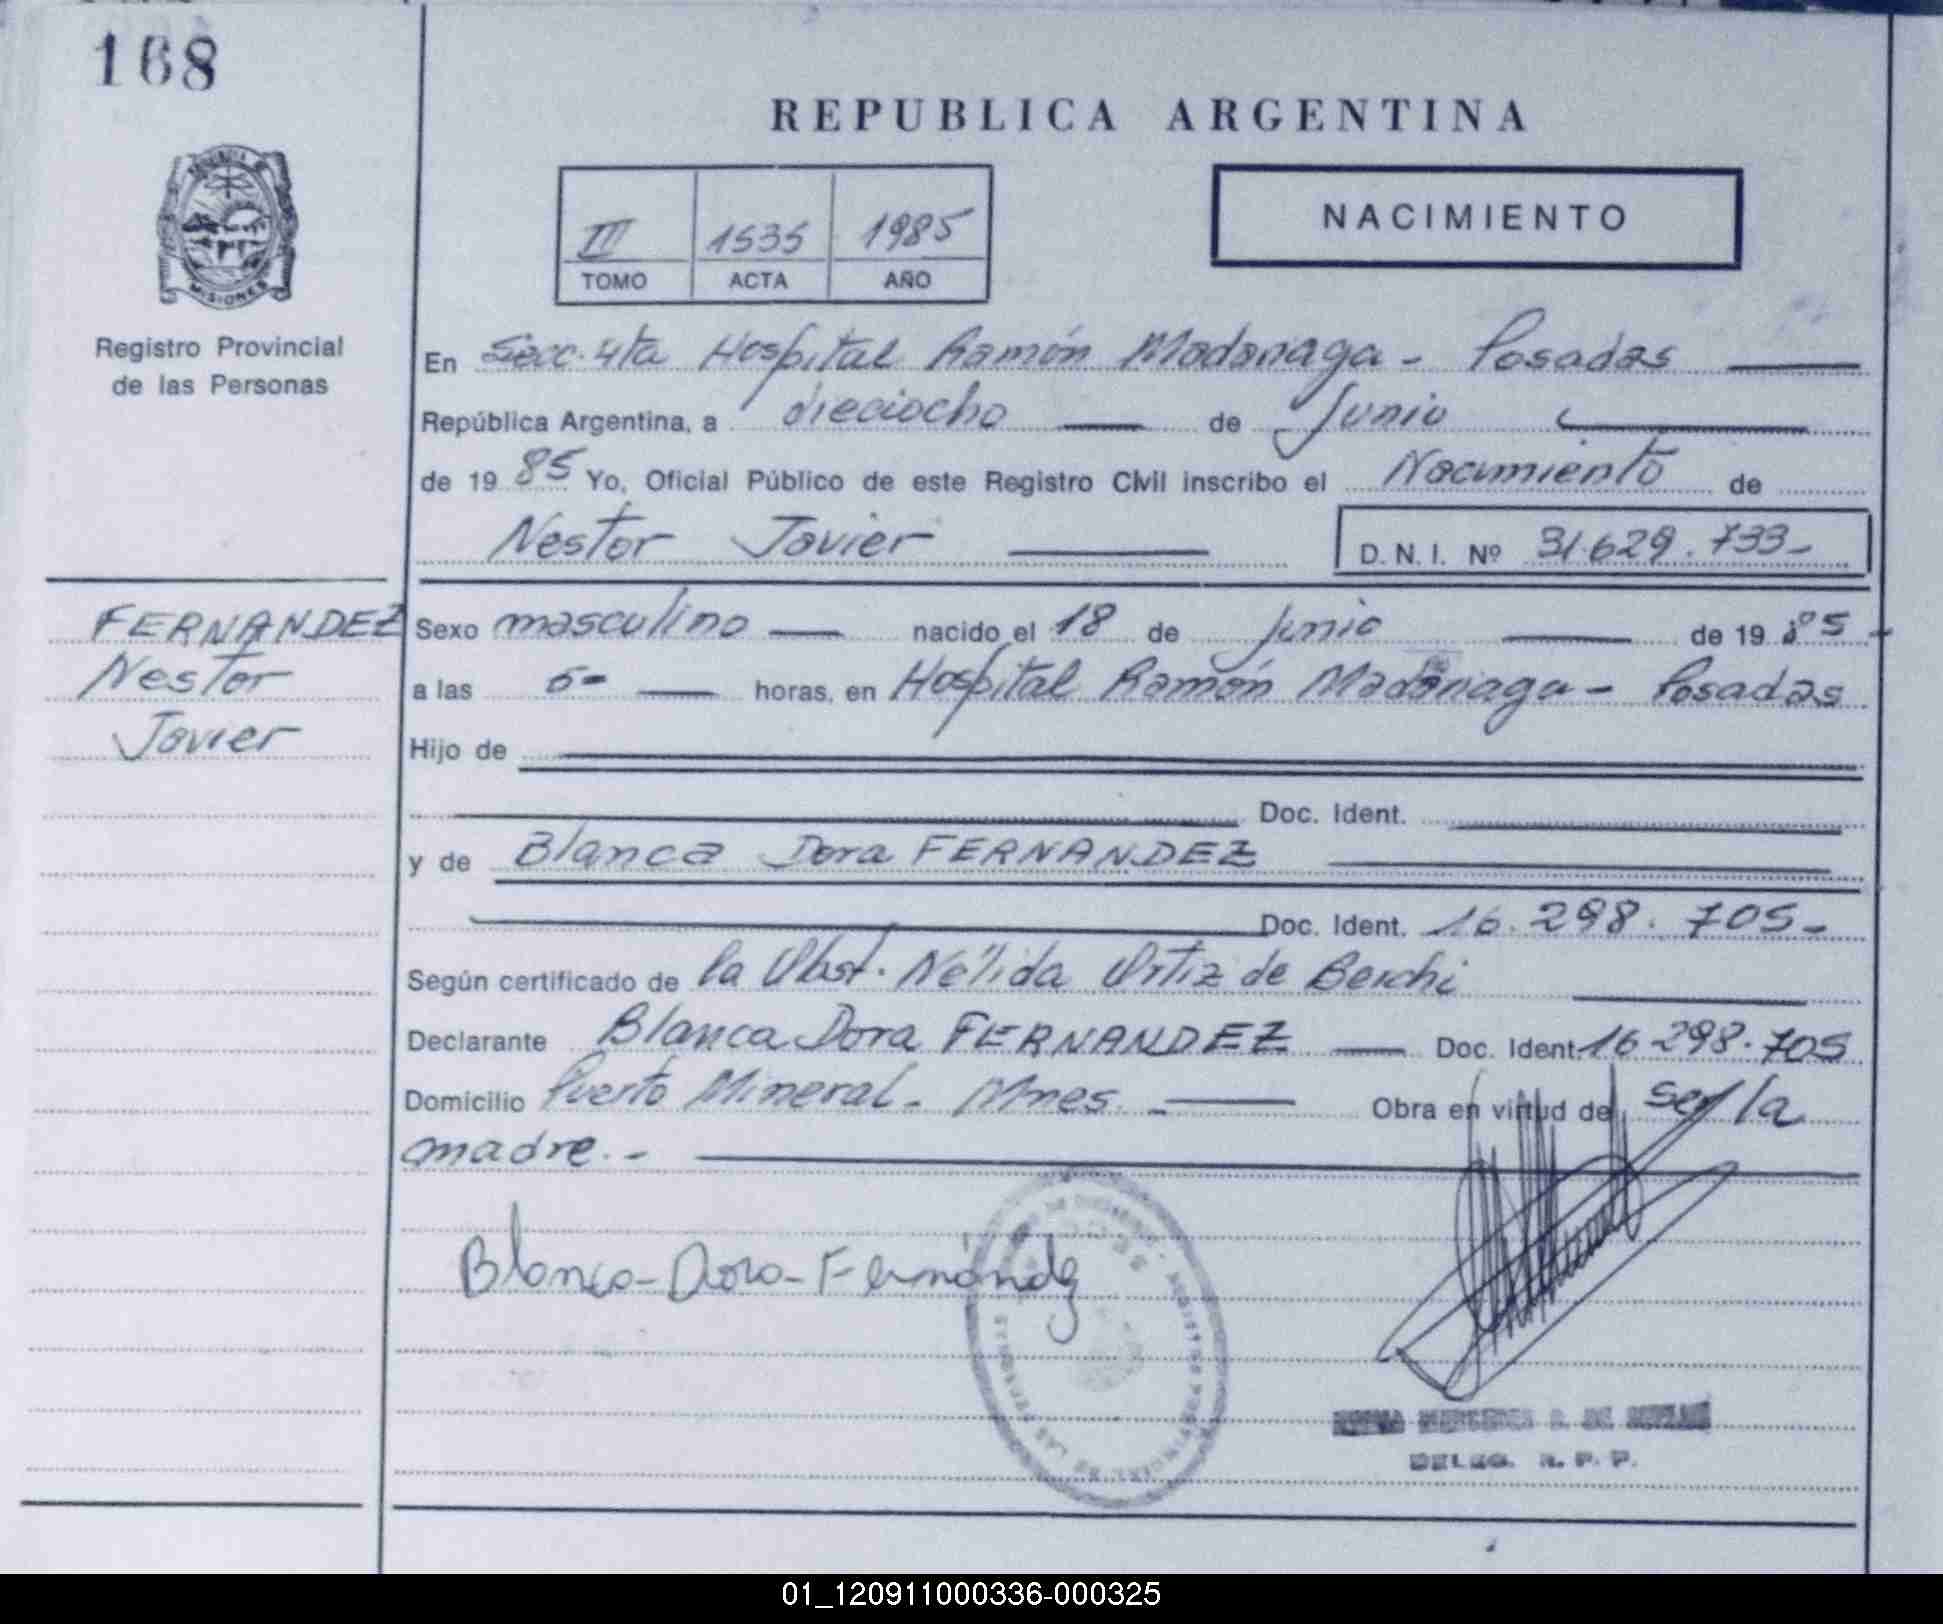 168
REPUBLICA ARGENTINA
III 1535 1985
TOMO ACTA AÑO
NACIMIENTO
MISIONES
Registro Provincial
de las Personas
En Secc. 4ta Hospital Ramón Madariaga - Posadas
República Argentina, a dieciocho de Junio
de 19 85 Yo, Oficial Público de este Registro Civil inscribo el Nacimiento de
Nestor Javier D. N. I. Nº 31.629.733-
FERNANDEZ
Nestor
Javier
Sexo masculino nacido el 18 de Junio de 19 85-
a las 6- horas, en Hospital Ramón Madariaga - Posadas
Hijo de
Doc. Ident.
y de Blanca Dora FERNANDEZ
Doc. Ident. 16.298.705-
Según certificado de la Obst. Nélida Ortiz de Berchi
Declarante Blanca Dora FERNANDEZ Doc. Ident. 16.298.705
Domicilio Puerto Mineral - Mnes. - Obra en virtud de ser la
madre.-
Blanca-Dora-Fernández
DELEG. R. P. P.
01_120911000336-000325